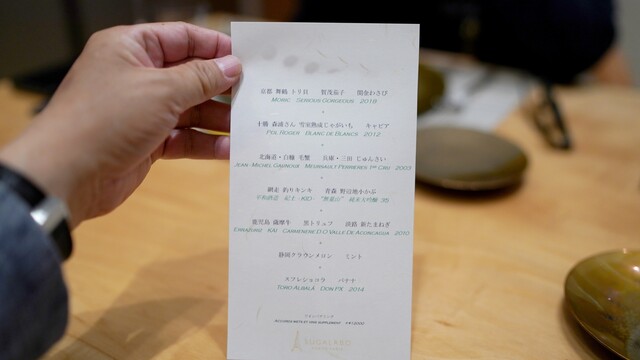 京都 舞鶴 トリ貝　賀茂茄子　間引わさび
Monic Serious Gorgeous 2018
十勝 森浦さん 雪室熟成じゃがいも　キャビア
Pehu Blanc de Blancs 2012
北海道・白糠 毛蟹　兵庫・三田 じゅんさい
Jean-Michel Gaunoux - Meursault Perrières 1er Cru 2003
網走 釣りキンキ　青森 野辺地小かぶ
平和酒造 紀土 - KID 純米大吟醸 35
鹿児島 薩摩牛　黒トリュフ　淡路 新たまねぎ
Errazuriz - Kai Carmenere D.O Valle de Aconcagua 2010
静岡クラウンメロン　ミント
スフレショコラ　バナナ
Toro Albalá Don PX 2014
SUGALABO